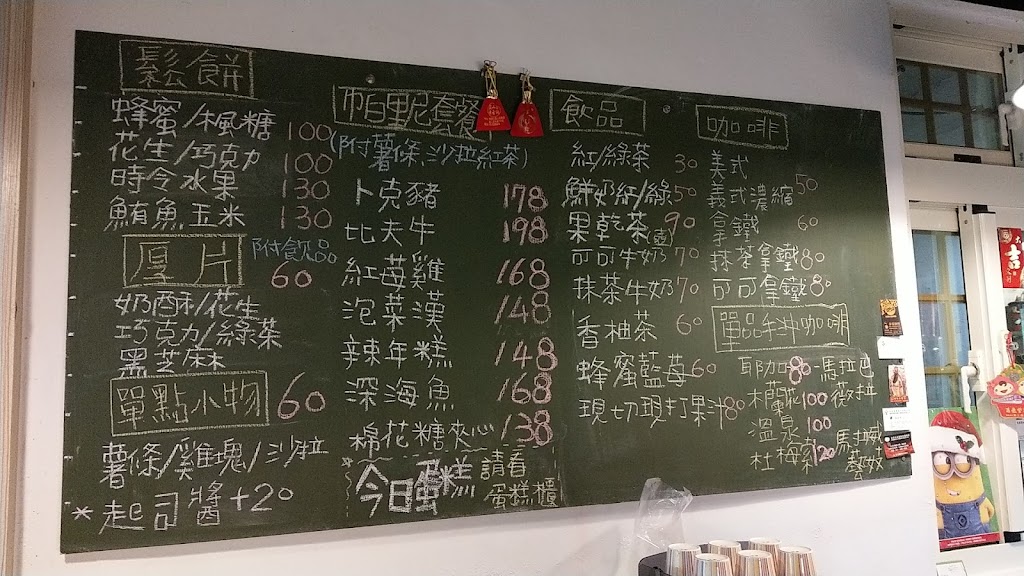 鬆餅
蜂蜜/楓糖 100
花生/巧克力 100
時令水果 130
鮪魚玉米 130
厚片 附飲品 60
奶酥/花生
巧克力/綠茶
黑芝麻
單點小物 60
薯條/雞塊/沙拉
*起司醬+20
帕里尼套餐
(附薯條.沙拉紅茶)
卜克豬 178
比夫牛 198
紅苺雞 168
泡菜漢 148
辣年糕 148
深海魚 168
棉花糖夾心 138
今日蛋糕 請看
蛋糕櫃
飲品
紅/綠茶 30
鮮奶紅/綠 50
果乾茶(壺) 90
可可牛奶 70
抹茶牛奶 70
香柚茶 60
蜂蜜藍苺 60
現切現打果汁 80
咖啡
美式
義式濃縮 50
拿鐵 60
抹茶拿鐵 80
可可拿鐵 80
單品手沖咖啡
耶加 80 馬拉巴
木蘭花 100 薇拉
溫泉 100
杜梅索 120 馬拉威
藝妓
吉